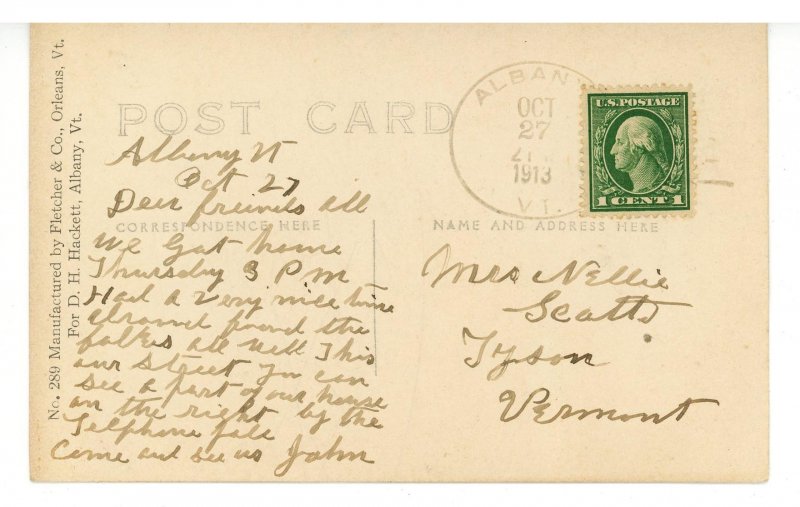 No. 289 Manufactured by Fletcher & Co., Orleans, Vt.
For D. H. Hackett, Albany, Vt.
POST CARD
ALBANY
OCT
27
1913
VT.
U.S. POSTAGE
1 CENT 1
Albany Vt
Oct 27
Dear freinds all
CORRESPONDENCE HERE
We Got home
Thursday 3 PM
Had a very nice time
around found the
folkes all well This
our Street you can
see a part of our house
on the right by the
Telphone pole
Come out see us John
NAME AND ADDRESS HERE
Mrs Nellie
Scott
Tyson
Vermont